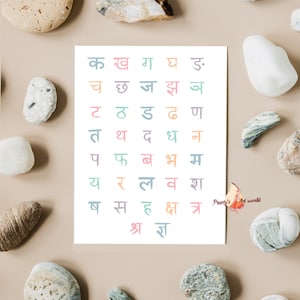 क ख ग घ ङ
च छ ज झ ञ
ट ठ ड ढ ण
त थ द ध न
प फ ब भ म
य र ल व श
ष स ह क्ष त्र
श्र ज्ञ